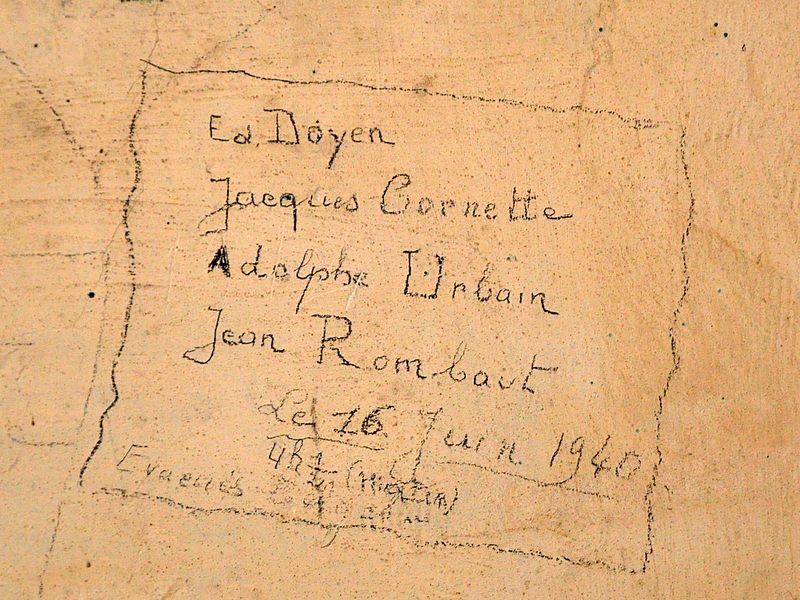 Ed. Doyen
Jacques Cornette
Adolphe Urbain
Jean Rombaut
Le 16 Juin 1940
4h 1/2 (matin)
Evacués